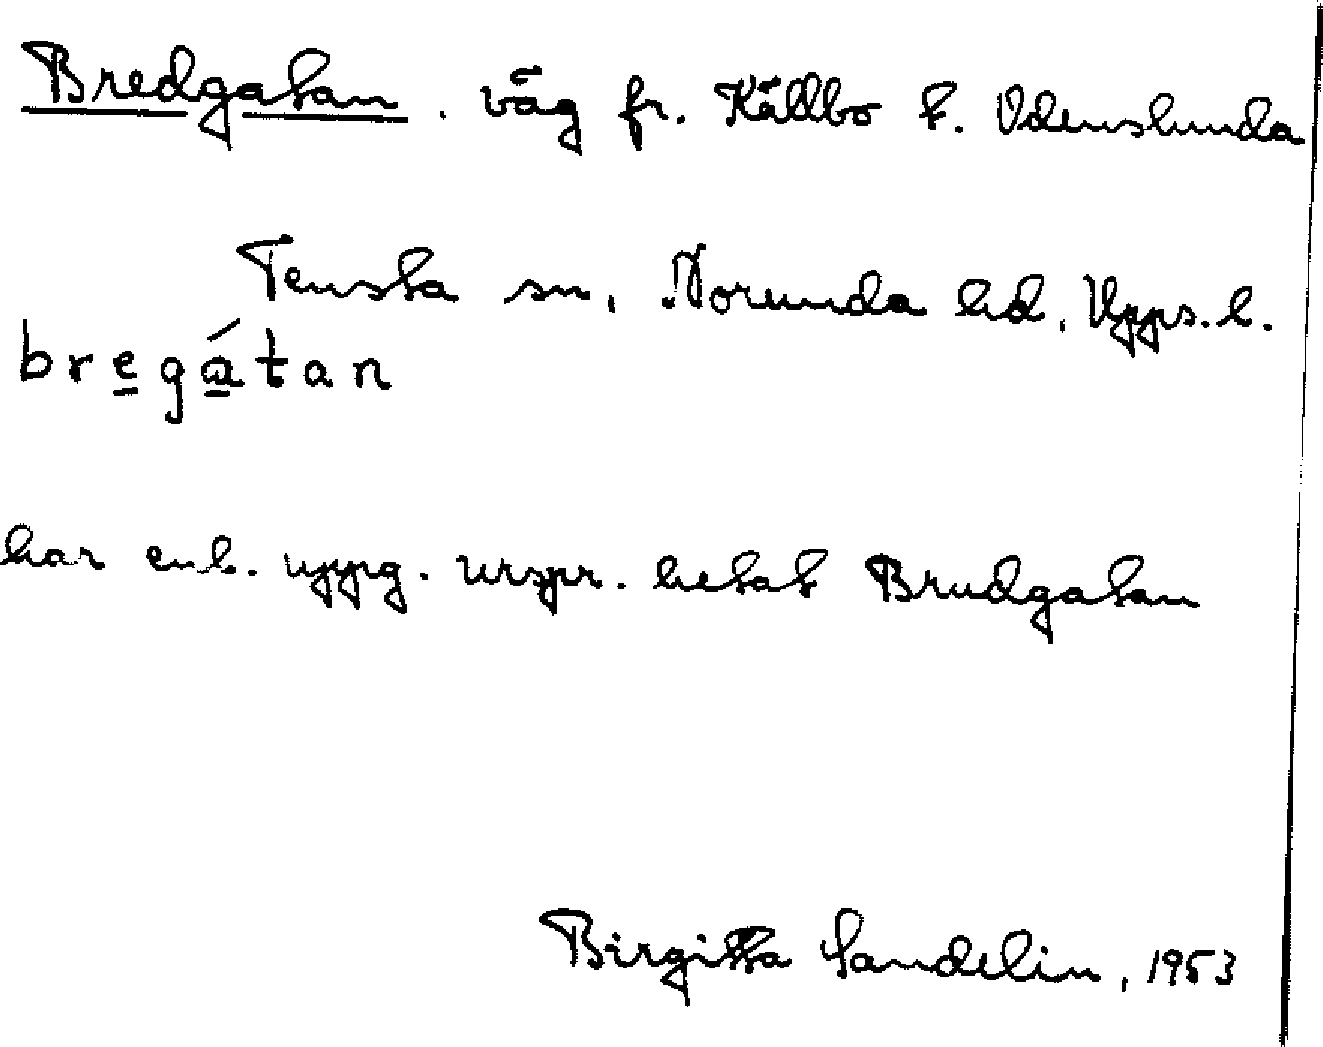 Bredgatan. väg fr. Källbo t. Odenslunda
Tensta sn, Norunda hd, Upps. l.
bregátan
har enl. uppg. urspr. hetat Brudgatan
Birgitta Sandelin, 1953